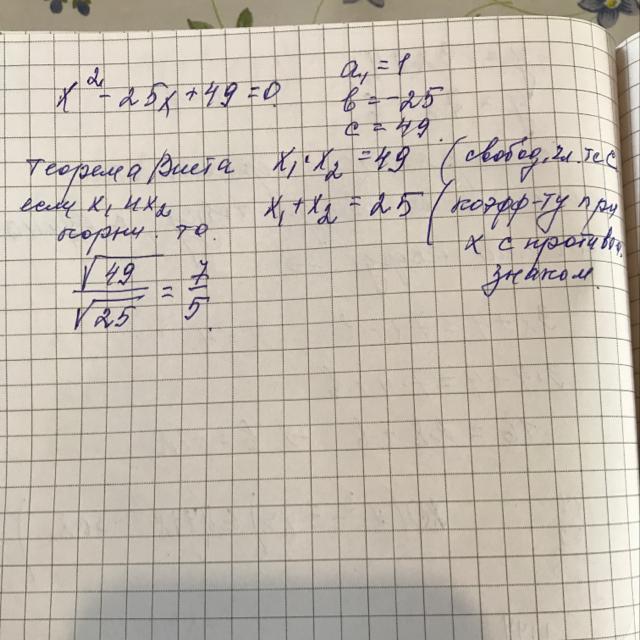 x² - 25x + 49 = 0
a, = 1
в = -25
c = 49
Теорема Виета x₁·x₂ = 49 (свобод. чл. т.е с
если x₁ и x₂ x₁ + x₂ = 25 (коэфф-ту при
корни. то. x с противоп.
знаком.
√49 / √25 = 7/5